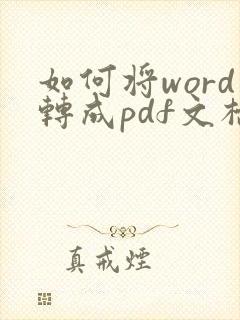 如何将word
轉成pdf文档
真戒煙